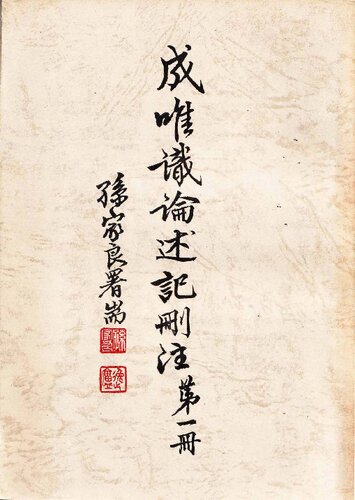 成唯識論述記刪注第一冊
孫家良署耑